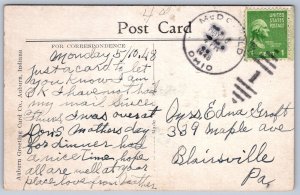 4¢
Post Card
FOR CORRESPONDENCE
Auburn Greeting Card Co., Auburn, Indiana
McDONALD
OHIO
Monday 5/10.48
Just a card to let
you know I am
OK I have not had
my mail since
Thurs, I was over at
Don's Mothers day
for dinner had
a nice time hope
all are well at your
place love from
Miss Edna Groft
389 Maple ave
Blairsville
Pa,